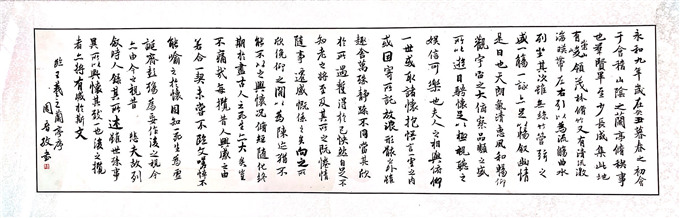 永和九年歲在癸丑暮春之初會
于會稽山陰之蘭亭脩稧事
也羣賢畢至少長咸集此地
有崇山峻領茂林脩竹又有清流激
湍暎帶左右引以為流觴曲水
列坐其次雖無絲竹管弦之
盛一觴一詠亦足以暢叙幽情
是日也天朗氣清惠風和暢仰
觀宇宙之大俯察品類之盛
所以遊目騁懷足以極視聽之
娛信可樂也夫人之相與俯仰
一世或取諸懷抱悟言一室之內
或因寄所託放浪形骸之外雖
趣舍萬殊靜躁不同當其欣
於所遇暫得於己怏然自足不
知老之將至及其所之既惓情
隨事遷感慨係之矣向之所
欣俛仰之間以為陳迹猶不
能不以之興懷況脩短隨化終
期於盡古人云死生亦大矣豈
不痛哉每攬昔人興感之由
若合一契未嘗不臨文嗟悼不
能喻之於懷固知一死生為虛
誕齊彭殤為妄作後之視今
亦由今之視昔 悲夫故列
叙時人錄其所述雖世殊事
異所以興懷其致一也後之攬
者亦將有感於斯文
臨王羲之蘭亭序
周 書